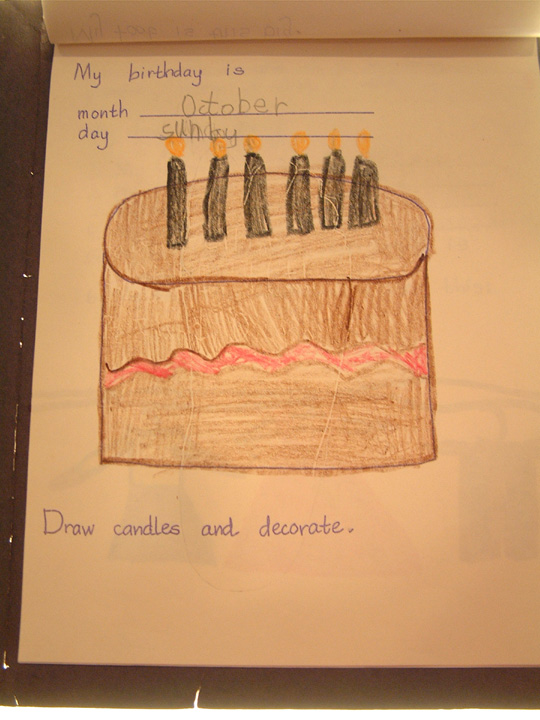 My birthday is
month October
day sunday
Draw candles and decorate.